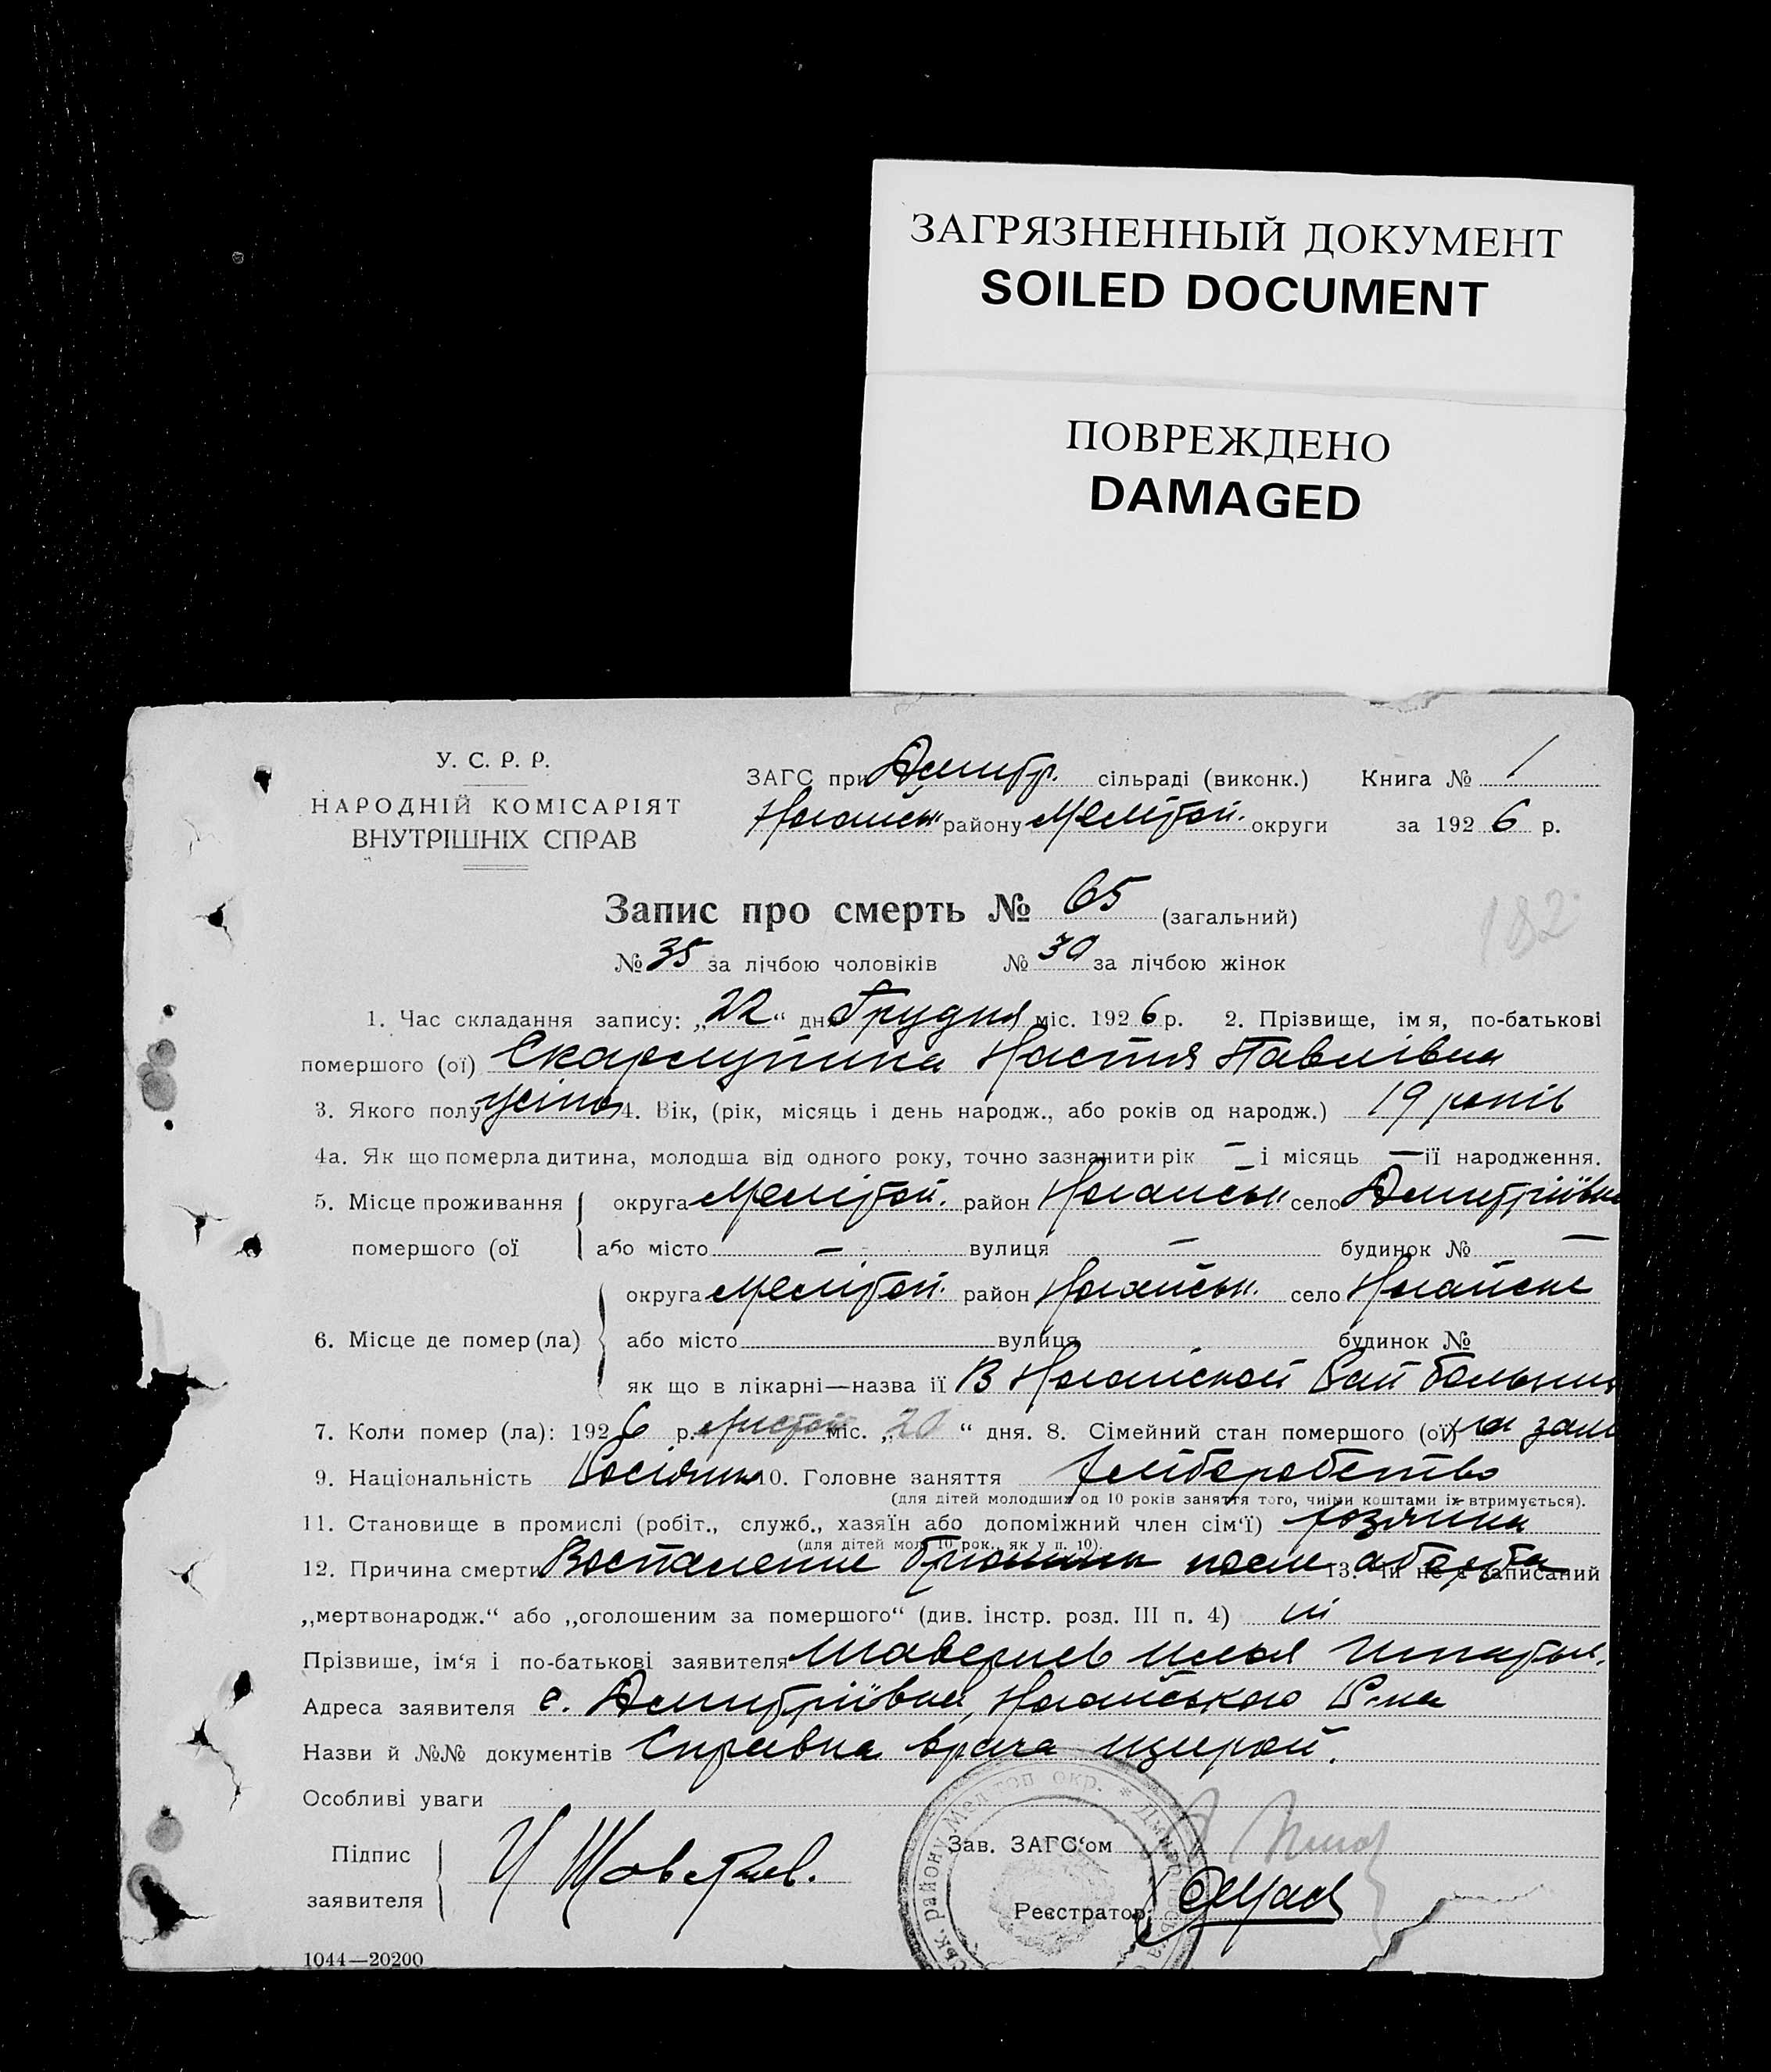 ЗАГРЯЗНЕННЫЙ ДОКУМЕНТ
SOILED DOCUMENT
ПОВРЕЖДЕНО
DAMAGED
У. С. Р. Р.
НАРОДНІЙ КОМІСАРІЯТ
ВНУТРІШНІХ СПРАВ
ЗАГС при Дмитр. сільраді (виконк.) Книга № 1
Ногайськ району Мелітоп. округи за 1926 р.
Запис про смерть № 65 (загальний)
№ 35 за лічбою чоловіків № 30 за лічбою жінок
182
1. Час складання запису: „22“ дня Грудня міс. 1926 р. 2. Прізвище, ім я, по-батькові
помершого (ої) Настя Павлівна
3. Якого полу 4. Вік, (рік, місяць і день народж., або років од народж.) 19 років
4а. Як що померла дитина, молодша від одного року, точно зазначити рік — і місяць — її народження.
5. Місце проживання округа Мелітоп. район Ногайськ село Дмитріївка
помершого (ої або місто — вулиця — будинок № —
округа Мелітоп. район Ногайськ. село Ногайськ
6. Місце де помер (ла) або місто вулиця будинок №
як що в лікарні—назва її В Ногайской Рай больниц
7. Коли помер (ла): 1926 р. Листоп міс. „20“ дня. 8. Сімейний стан помершого (ої) зам
9. Національність 10. Головне заняття хліборобство
(для дітей молодших од 10 років заняття того, чиїми коштами їх втримується).
11. Становище в промислі (робіт., служб., хазяїн або допоміжний член сім‘ї)
(для дітей мол. 10 рок., як у п. 10).
12. Причина смерти Воспаление брюшины после аборта 13. Чи не є записаний
„мертвонародж.“ або „оголошеним за помершого“ (див. інстр. розд. III п. 4) ні
Прізвище, ім‘я і по-батькові заявителя Илья
Адреса заявителя с. Дмитріївка, Ногайського Р-на
Назви й №№ документів Справка врача
Особливі уваги
Підпис
заявителя
Зав. ЗАГС‘ом
Реєстратор
1044—20200